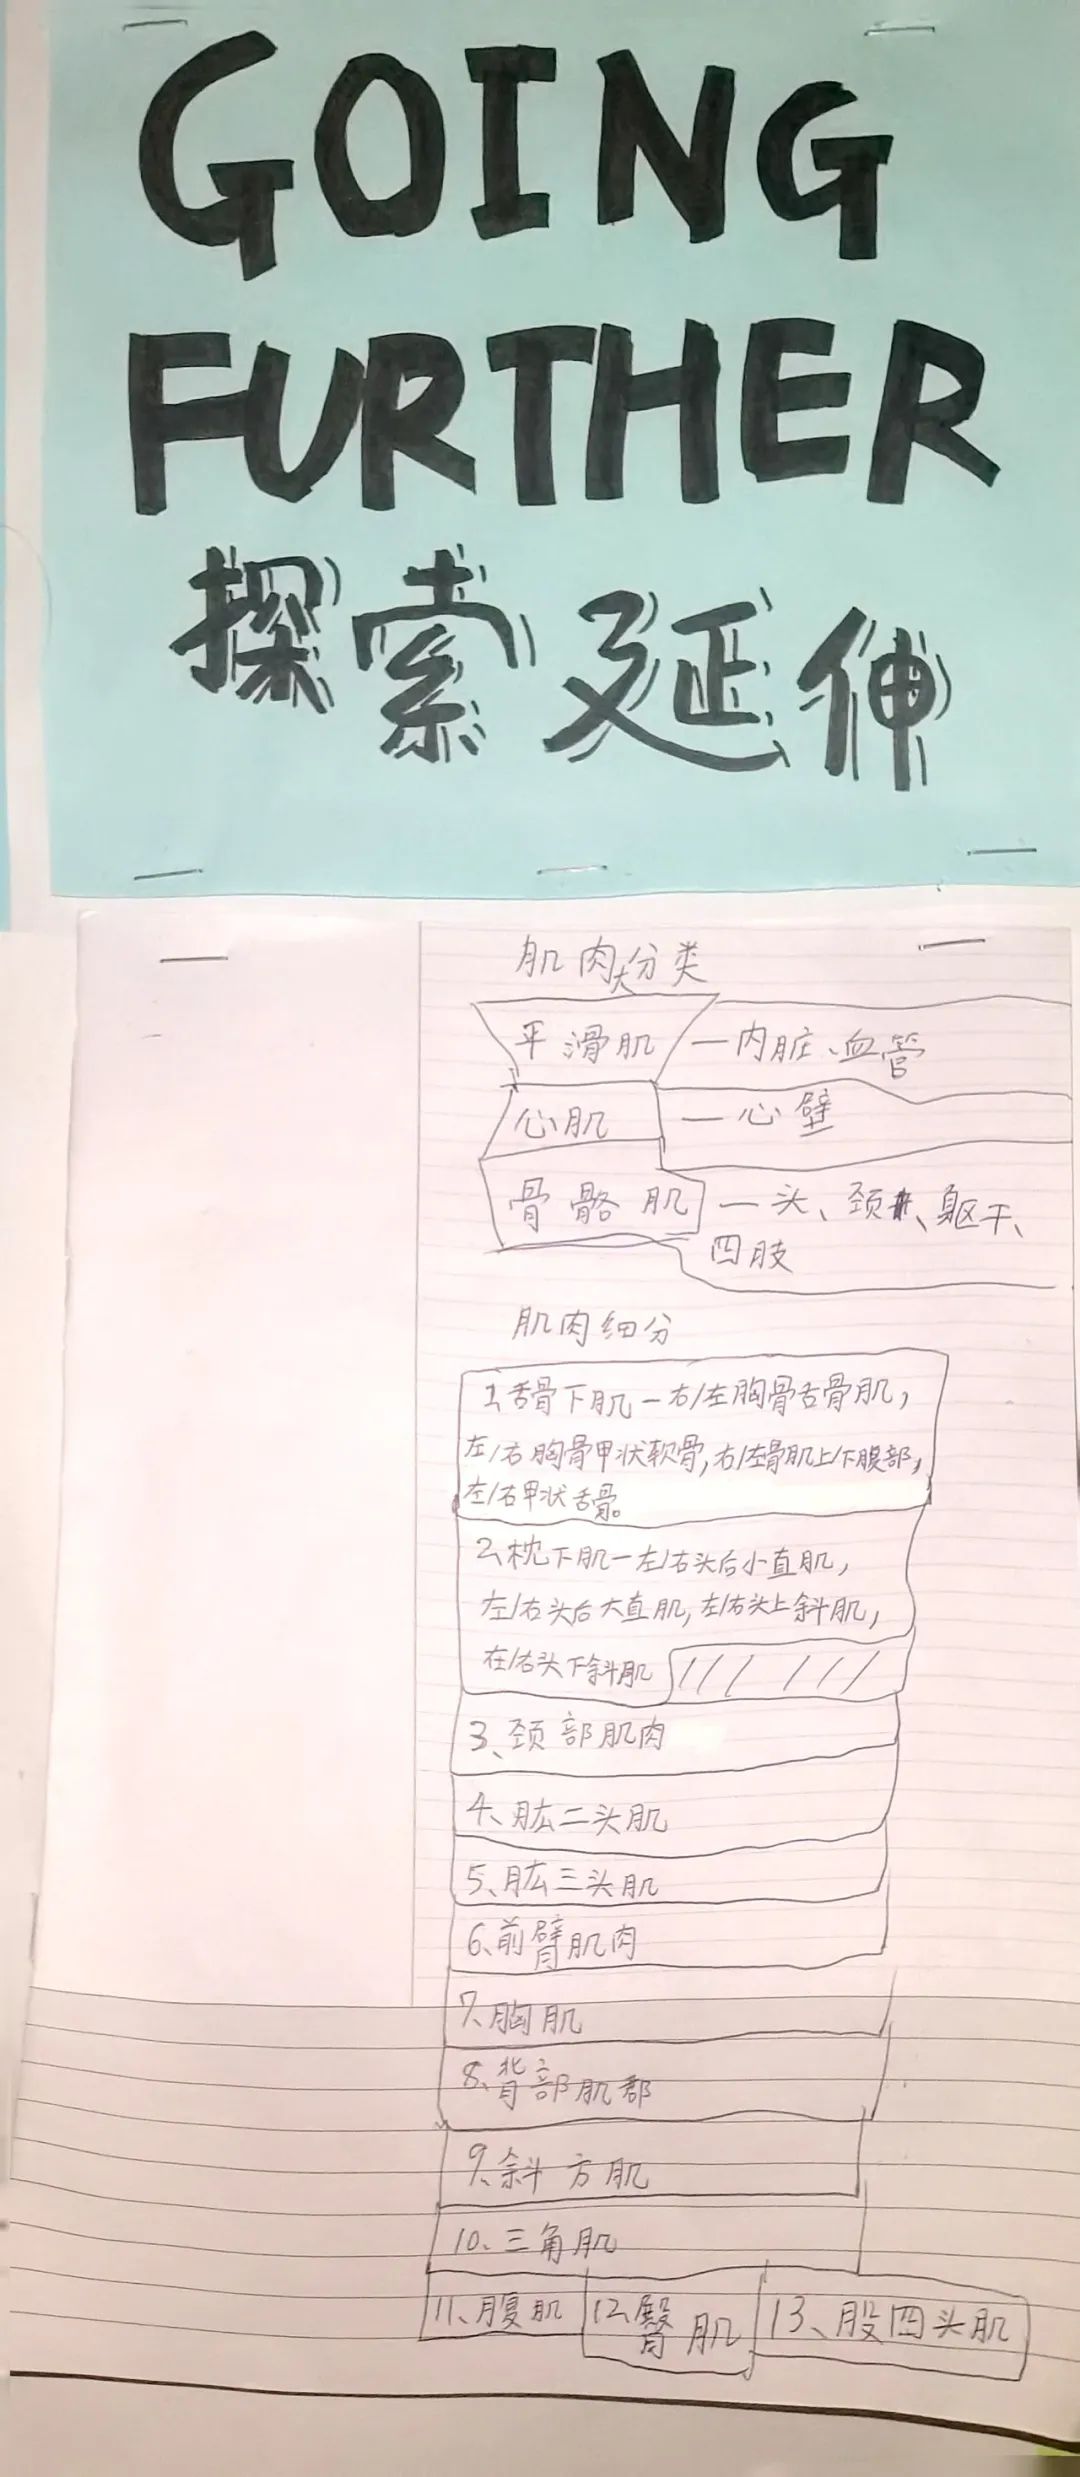 GOING
FURTHER
探索延伸
肌肉大分类
平滑肌 — 内脏、血管
心肌 — 心壁
骨骼肌 — 头、颈、躯干、
四肢
肌肉细分
1、舌骨下肌 — 右/左胸骨舌骨肌,
左/右胸骨甲状软骨,右/左骨肌上/下腹部,
左/右甲状舌骨。
2、枕下肌 — 左/右头后小直肌,
左/右头后大直肌,左/右头上斜肌,
在/右头下斜肌
3、颈部肌肉
4、肱二头肌
5、肱三头肌
6、前臂肌肉
7、胸肌
8、背部肌郡
9、斜方肌
10、三角肌
11、腹肌 12、臀肌 13、股四头肌